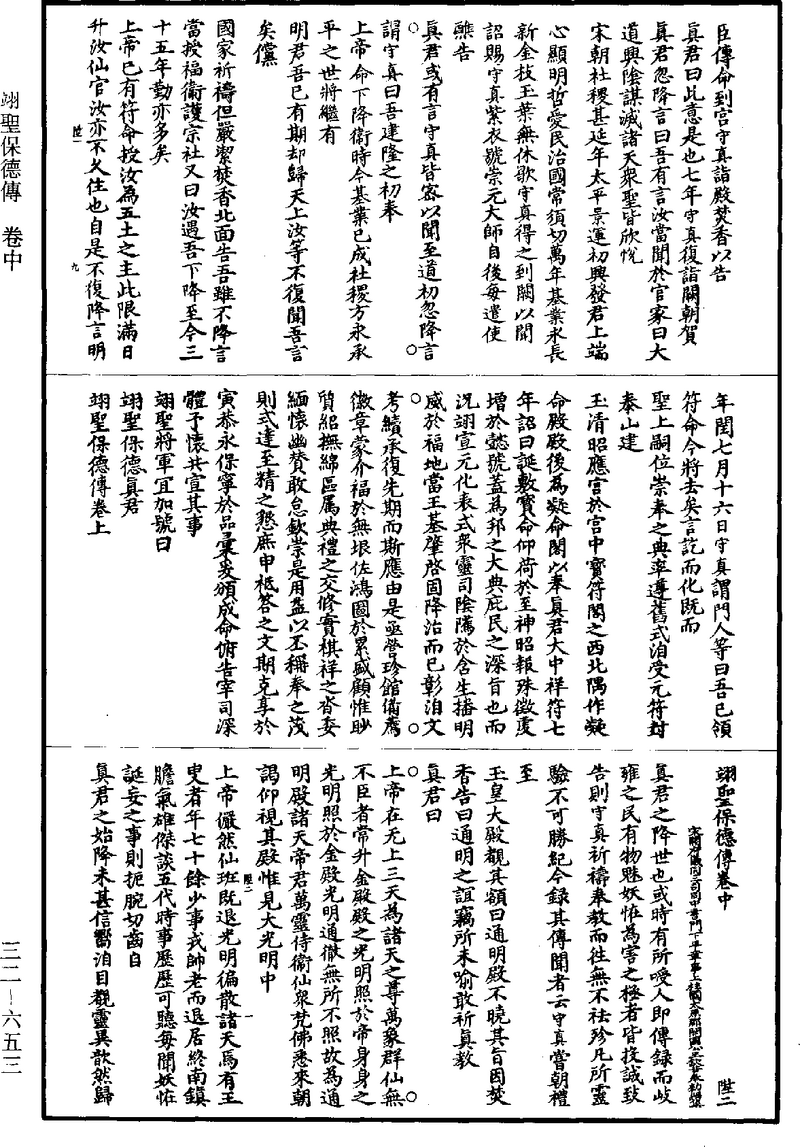 翊聖保德傳　卷中
三二－六五三
臣傳命到宮守真詣殿焚香以告
真君曰此意是也七年守真復詣闕朝賀
真君忽降言曰吾有言汝當聞於官家曰大
道興陰謀滅諸天衆聖皆欣悅
宋朝社稷甚延年太平景運初興發君上端
心顯明哲愛民治國常須切萬年基業永長
新金枝玉葉無休歇守真得之到闕以聞
詔賜守真紫衣號崇元大師自後每遣使
醮告
真君或有言守真皆密以聞至道初忽降言
謂守真曰吾建隆之初奉
上帝命下降衛時今基業已成社稷方永承
平之世將繼有
明君吾已有期却歸天上汝等不復聞吾言
矣儻
國家祈禱但嚴潔焚香北面告吾雖不降言
當授福衛護宗社又曰汝遇吾下降至今三
十五年勤亦多矣
上帝已有符命授汝為五土之主此限滿日
升汝仙官汝亦不久住也自是不復降言明
陞一
九
年閏七月十六日守真謂門人等曰吾已領
符命今將去矣言訖而化既而
聖上嗣位崇奉之典率遵舊式洎受元符封
泰山建
玉清昭應宮於宮中寶符閣之西北隅作凝
命殿殿後為凝命閣以奉真君大中祥符七
年詔曰誕敷寶命仰荷於至神昭報殊徵虔
增於懿號蓋為邦之大典庇民之深旨也而
況翊宣元化表式衆靈司陰隲於含生播明
威於福地當王基肇啓固降治而已彰洎文
考績承復先期而斯應由是亟營珍館備薦
徽章蒙介福於無垠佐鴻圖於累盛顧惟眇
質紹撫綿區属典禮之交修實棋祥之沓委
緬懷幽贊敢怠欽崇是用益以丕稱奉之茂
則式達至精之懇庶申祗答之文期克享於
寅恭永保寧於品彙爰頒成命俯告宰司深
體予懷共宣其事
翊聖將軍宜加號曰
翊聖保德真君
翊聖保德傳卷上
翊聖保德傳卷中
陞二
真君之降世也或時有所嗳人即傳録而岐
雍之民有物魅妖怪為害之極者皆投誠致
告則守真祈禱奉教而往無不祛殄凡所靈
驗不可勝紀今録其傳聞者云守真嘗朝禮
至
玉皇大殿覩其額曰通明殿不曉其旨因焚
香告曰通明之誼竊所未喻敢祈真教
真君曰
上帝在无上三天為諸天之尊萬象群仙無
不臣者常升金殿殿之光明照於帝身身之
光明照於金殿光明通徹無所不照故為通
明殿諸天帝君萬靈侍衛仙衆梵佛悉來朝
謁仰視其殿惟見大光明中
上帝儼然仙班既退光明徧散諸天焉有王
陞二
一
叟者年七十餘少事戎帥老而退居終南鎮
膽氣雄傑談五代時事歷歷可聽每聞妖怪
誕妄之事則扼腕切齒自
真君之始降未甚信嚮洎目覩靈異歘然歸